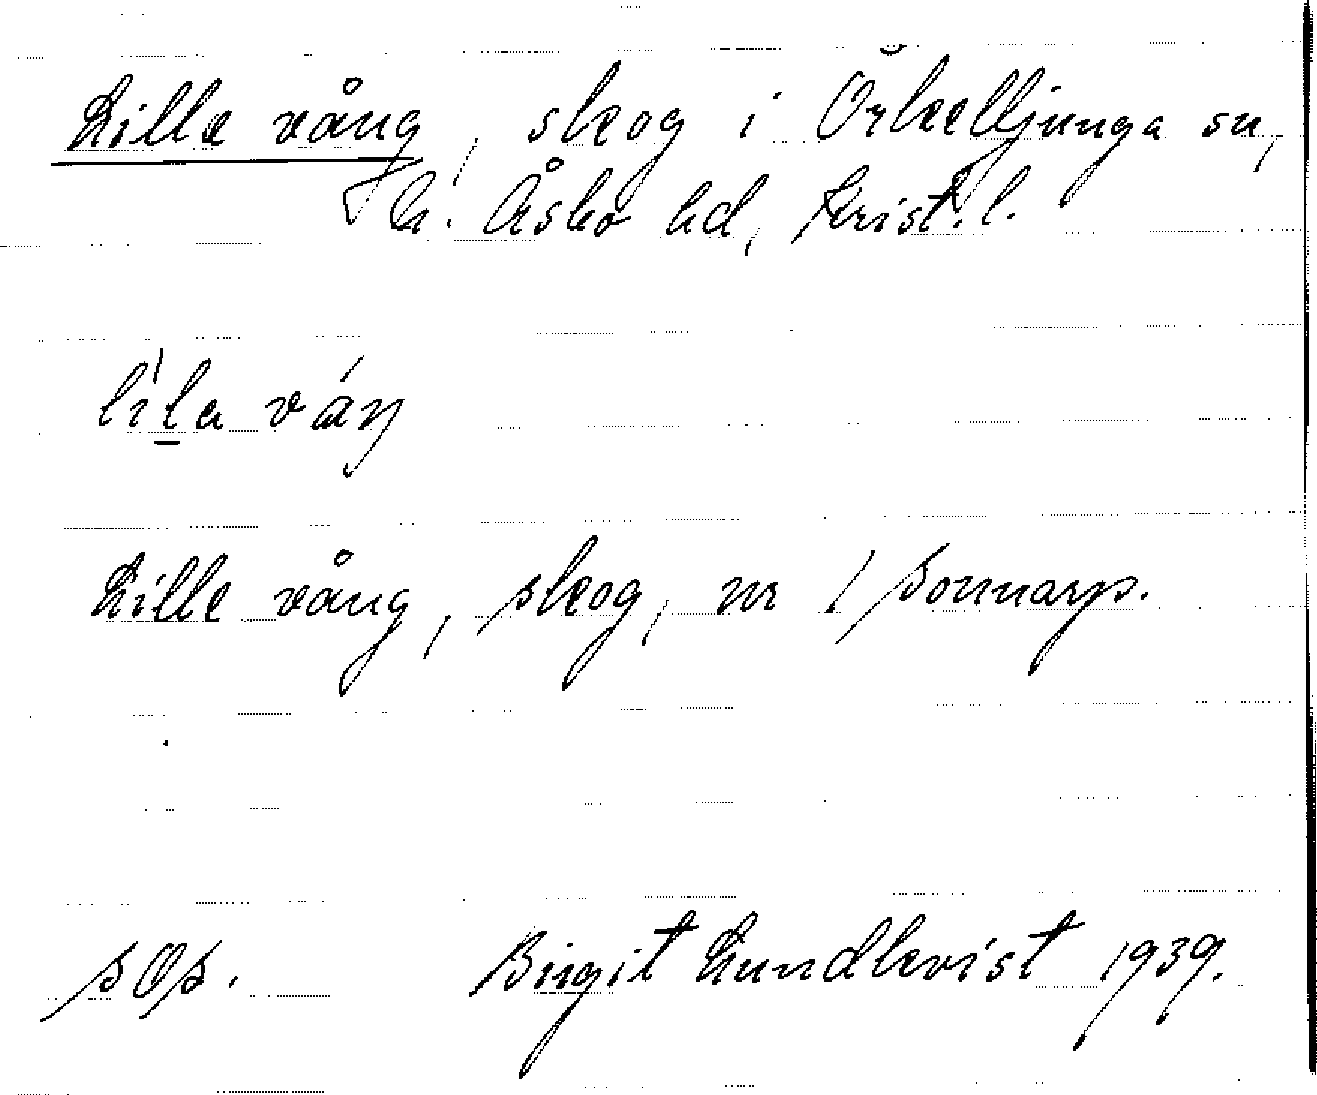 Lille vång, skog i Örkelljunga sn,
N. Åsbo hd, Krist. l.
lìla váŋ
Lille vång, skog, nr 1 Sonnarp.
Birgit Lundkvist 1939.